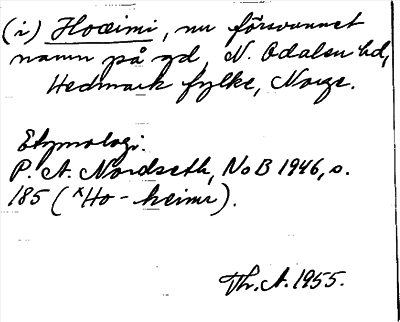 (i) Hoœimi, nu försvunnet
namn på gd, N. Odalen hd,
Hedmark fylke, Norge.
Etymologi:
P. A. Nordseth, NoB 1946, s.
185 (ˣHo-heimr).
Th. A. 1955.